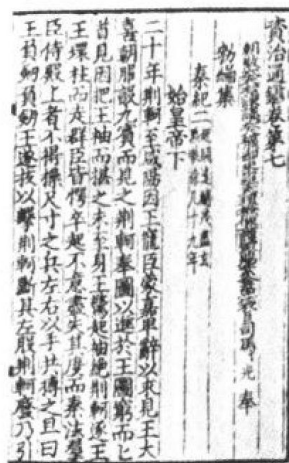 資治通鑑卷第七
司馬光 奉
勑編集
秦紀二
十九年
始皇帝下
二十年荆軻至咸陽因王寵臣蒙嘉卑辭以求見王大
喜朝服設九賓而見之荆軻奉圖以進於王圖窮而匕
首見因把王袖而揕之未至身王驚起袖絶荆軻逐王
王環柱而走群臣皆愕卒起不意盡失其度而秦法羣
臣侍殿上者不得操尺寸之兵左右以手共搏之且曰
王負劒負劒王遂拔以擊荆軻斷其左股荆軻廢乃引